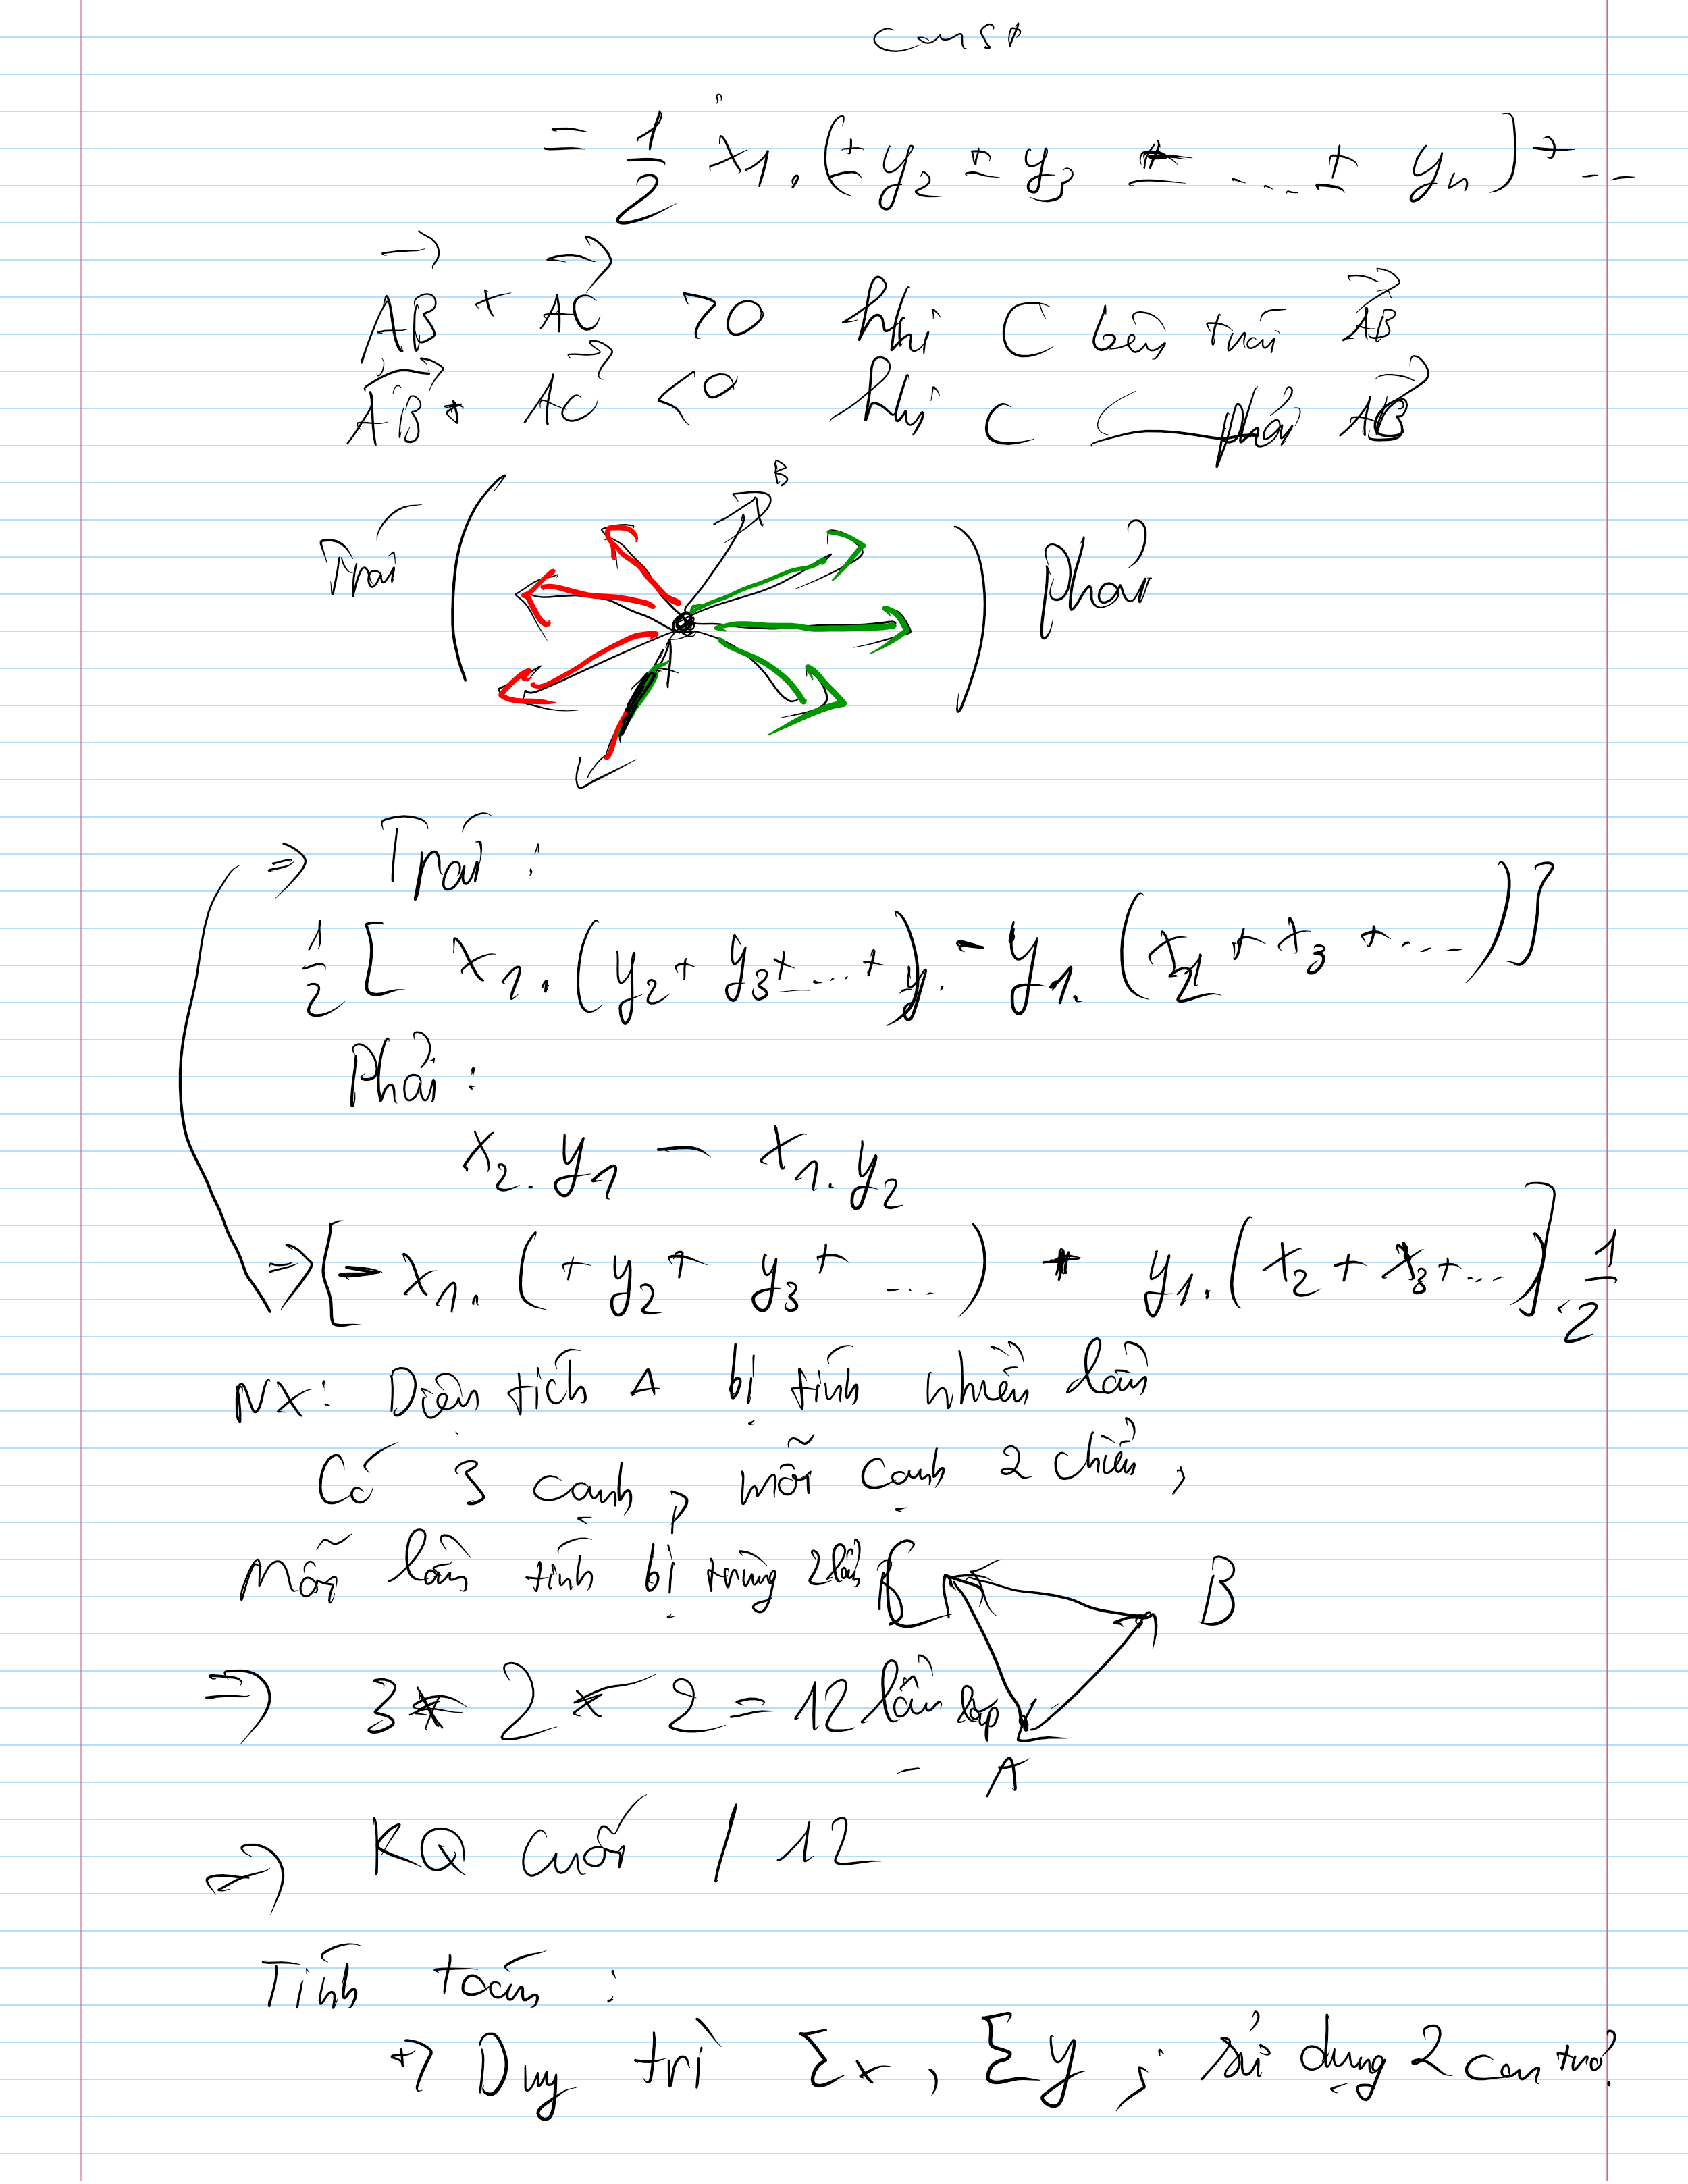 const
= 1/2 x1.(± y2 ± y3 ± ... ± yn) + ...
AB + AC > 0 khi C bên trái AB
AB * AC < 0 khi C phải AB
B
Trái ( ) Phải
=> Trái :
1/2 [ x1.(y2 + y3 + ... + y.) - y1.(x2 + x3 + ...)]
Phải :
x2.y1 - x1.y2
=> [- x1.(+ y2 + y3 + ...) + y1.(x2 + x3 + ...)].1/2
NX: Diện tích Δ bị tính nhiều lần
Có 3 cạnh, mỗi cạnh 2 chiều,
mỗi lần tính bị trùng 2 lần
C B
=> 3 * 2 * 2 = 12 lần lặp
A
=> KQ cuối / 12
Tính toán :
+) Duy trì Σx, Σy ; sử dụng 2 con trỏ